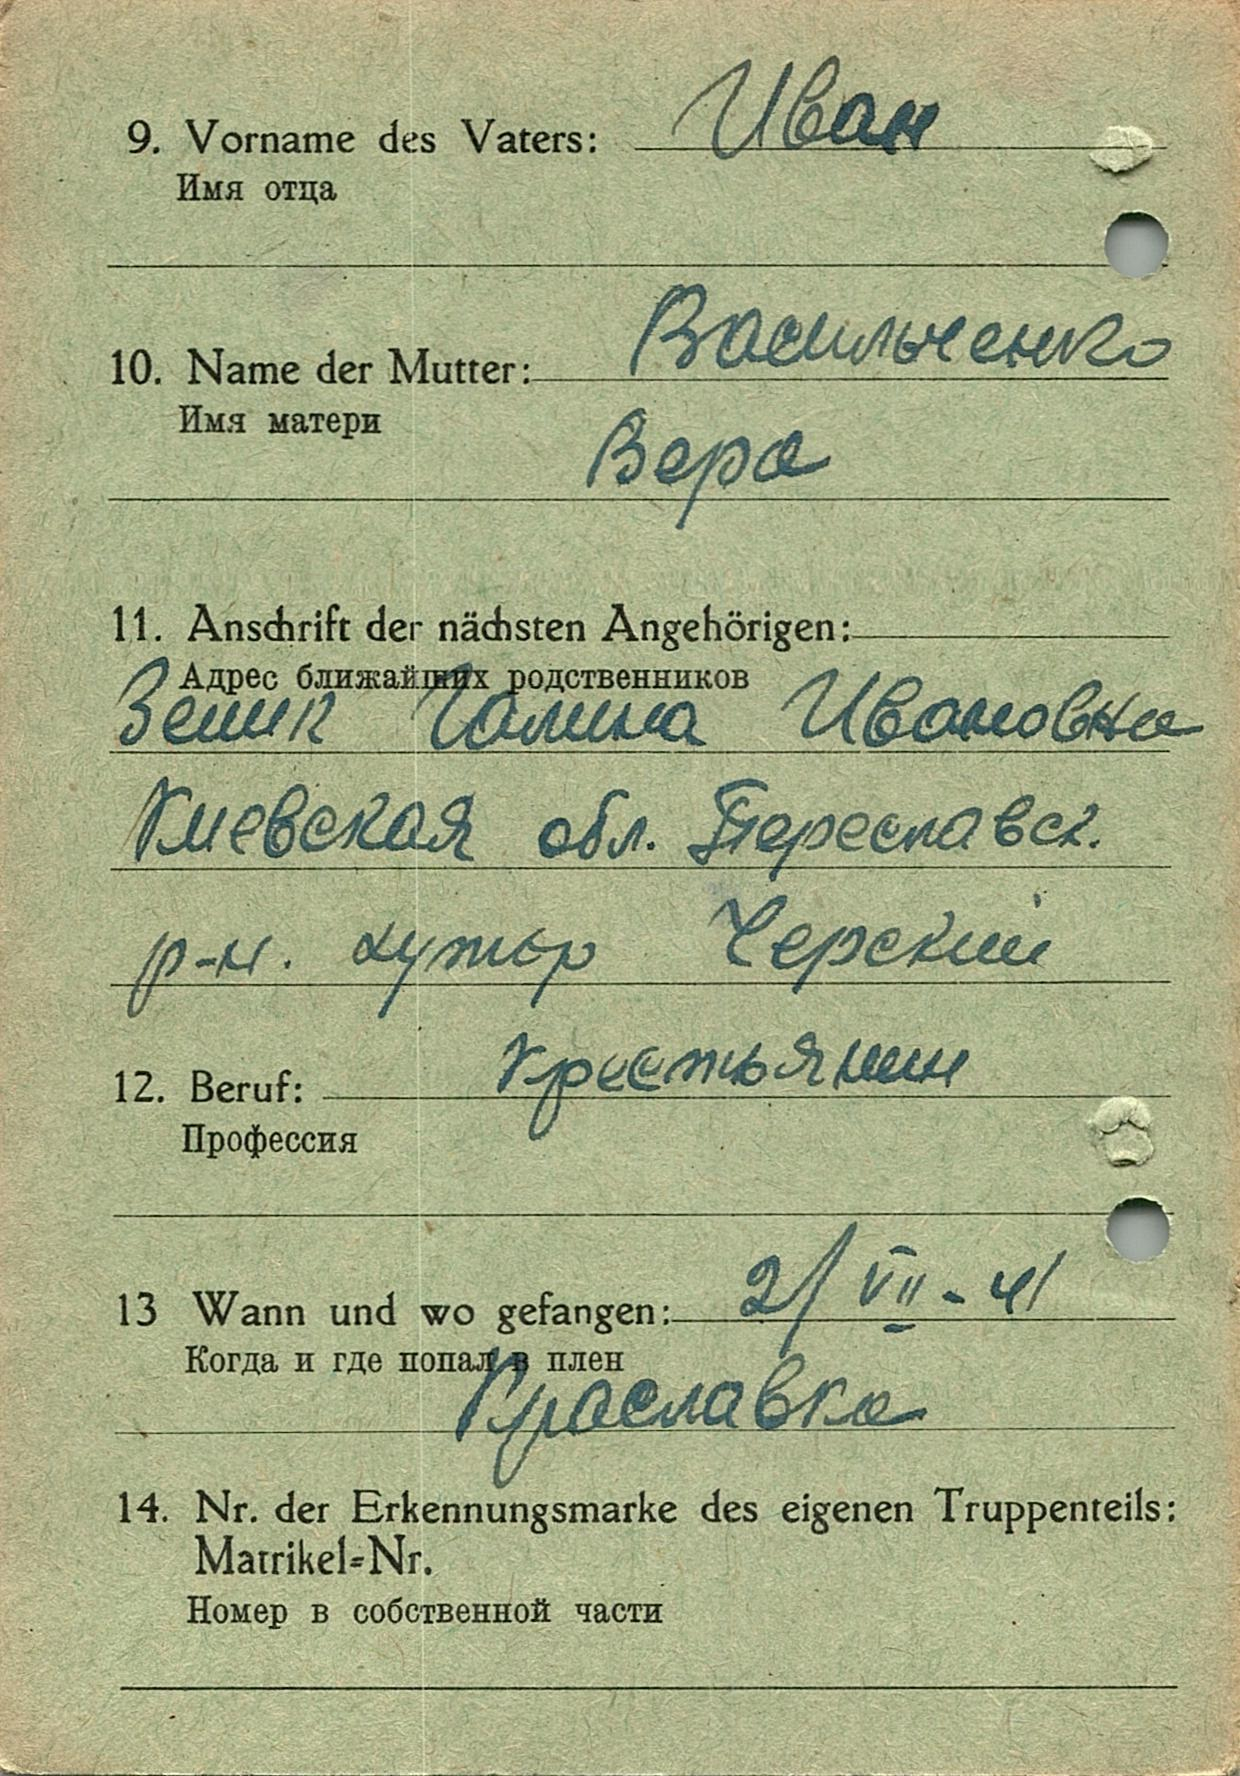 9. Vorname des Vaters: Иван
Имя отца
10. Name der Mutter: Васильченко
Имя матери
Вера
11. Anschrift der nächsten Angehörigen:
Адрес ближайших родственников
Галина Ивановна
Киевская обл. Переславск.
р-н. хутор Черский
12. Beruf: крестьянин
Профессия
13 Wann und wo gefangen: 2/VII-41
Когда и где попал в плен
Краславка
14. Nr. der Erkennungsmarke des eigenen Truppenteils:
Matrikel=Nr.
Номер в собственной части